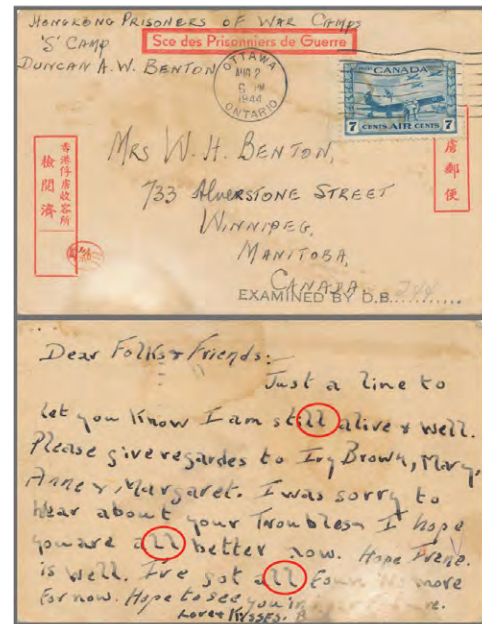 HONGKONG PRISONERS OF WAR CAMPS
'S' CAMP
Sce des Prisonniers de Guerre
DUNCAN A.W. BENTON
OTTAWA
AUG 2
5 PM
1944
ONTARIO
CANADA
7 CENTS AIR CENTS 7
香港俘虜收容所
檢閲濟
虜郵便
MRS W. H. BENTON,
733 ALVERSTONE STREET
WINNIPEG,
MANITOBA,
CANADA.
EXAMINED BY D.B. 244
Dear Folks & Friends:
Just a line to
let you know I am still alive & well.
Please give regardes to Ivy Brown, Mary,
Anne & Margaret. I was sorry to
hear about your Troubles I hope
you are all better now. Hope Irene
is well. I've got all No more
for now. Hope to see you in
Love & Kysses. B